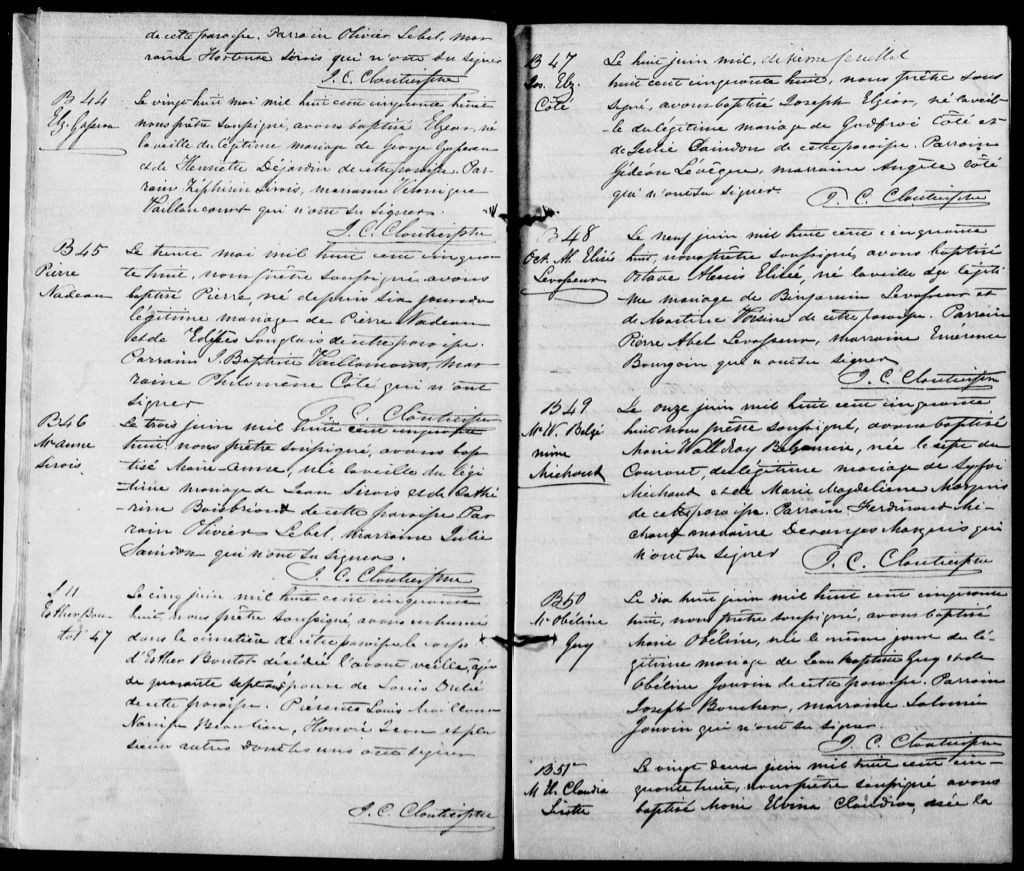 de cette paroisse. Parrain Olivier Lebel, mar
raine Hortense Sirois qui n'ont su signer
J. C. Cloutier ptre
B 44
Elz. Gasseau
Le vingt huit mai mil huit cent cinquante huit
nous prêtre soussigné, avons baptisé Elzear, né
la veille du légitime mariage de George
et de Henriette Déjardin de cette paroisse. Par-
rain Zéphirin Sirois, marraine Véronique
Vaillancourt qui n'ont su signer.
J. C. Cloutier ptre
B 45
Pierre
Nadeau
Le trente mai mil huit cent cinquan
te huit, nous prêtre soussigné, avons
baptisé Pierre, né depuis six jours du
légitime mariage de Pierre Nadeau
et de Langlais de cette paroisse.
Parrain J. Baptiste Vaillancourt, mar
raine Philomène Côté qui n'ont
signer
J. C. Cloutier ptre
B 46
M. Anne
Sirois
Le trois juin mil huit cent cinquante
huit nous prêtre soussigné, avons bap
tisé Marie-Anne, née la veille du légi
-time mariage de Jean Sirois et de Cathé
rine de cette paroisse. Par
rain Olivier Lebel, marraine Julie
Saindon qui n'ont su signer.
J. C. Cloutier ptre
S 11
Esther Bou
tot 47
Le cinq juin mil huit cent cinquante
huit, nous prêtre soussigné, avons inhumé
dans le cimetière de cette paroisse le corps
d'Esther Boutot décédée l'avant veille, agée
de quarante sept ans épouse de Louis Dubé
de cette paroisse. Présents Louis
Narcisse Beaulieu, Honoré Jean et plu
sieurs autres dont les uns ont signer
J. C. Cloutier ptre
B 47
Jos. Elz.
Côté
Le huit juin mil, deuxième feuillet
huit cent cinquante huit, nous prêtre sous
signé, avons baptisé Joseph Elzéar, né la veil-
le du légitime mariage de Godfroi Côté et
de Julie Saindon de cette paroisse. Parrain
Gédéon Lévêque, marraine Angèle Côté
qui n'ont su signer
J. C. Cloutier ptre
B 48
Oct. Al. Elisée
Levasseur
Le neuf juin mil huit cent cinquante
huit, nous prêtre soussigné, avons baptisé
Octave Alexis Elisée, né la veille du légiti-
me mariage de Binjamin Levasseur et
de Martine Voisine de cette paroisse. Parrain
Pierre Abel Levasseur, marraine Emérence
Bourgoin qui n'ont su signer
J. C. Cloutier ptre
B 49
M. W. Belzé
mire
Michaud
Le onze juin mil huit cent cinquante
huit nous prêtre soussigné, avons baptisé
Marie Belzemire, née le sept du
Courant, du légitime mariage de
Michaud et de Marie Magdeliene Marquis
de cette paroisse. Parrain Ferdinand Mi-
chaud madame Desanges Marquis qui
n'ont su signer
J. C. Cloutier ptre
B 50
M. Obéline
Guy
Le dix huit juin mil huit cent cinquante
huit, nous prêtre soussigné, avons baptisé
Marie Obéline, née le même jour du lé-
gitime mariage de Jean baptiste Guy et de
Obéline Jouvin de cette paroisse. Parrain
Joseph Boucher, marraine Salomée
Jouvin qui n'ont su signer.
J. C. Cloutier ptre
B 51
M. El. Claudia
Le vingt deux juin mil huit cent cin-
quante huit, nous prêtre soussigné avons
baptisé Marie Elvina Claudia, née la